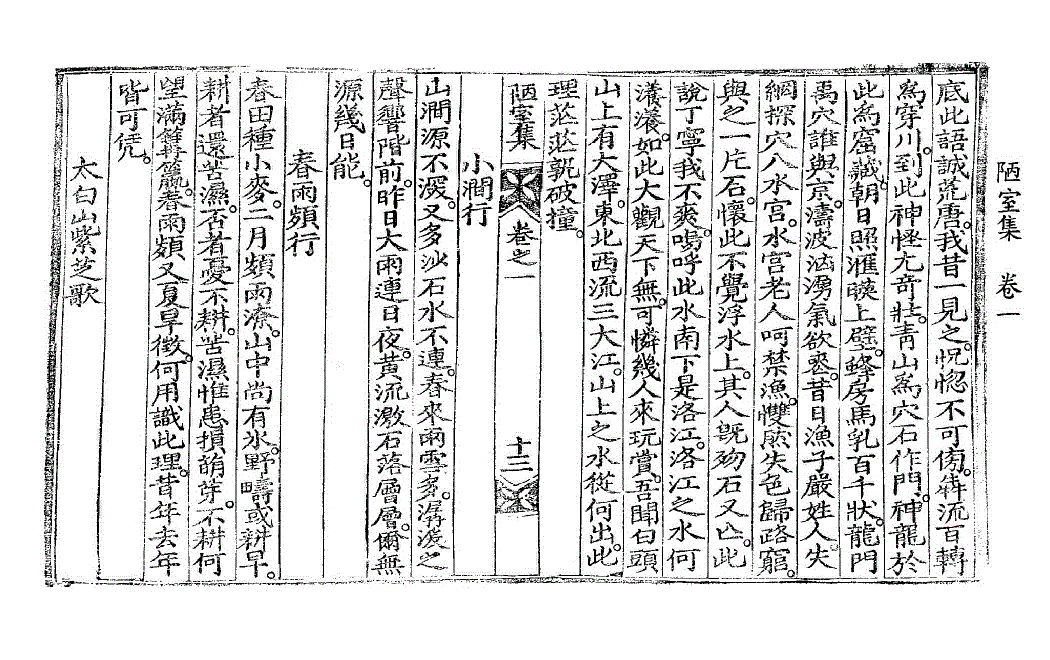 陋室集　卷一
底此語誠荒唐。我昔一見之。怳惚不可傍。犇流百轉
爲穿川。到此神怪尤奇壯。靑山爲穴石作門。神龍於
此爲窟藏。朝日照滙暎上壁。蜂房馬乳百千狀。龍門
禹穴誰與京。濤波汹湧氣欲衮。昔日漁子嚴姓人。失
網探穴入水宮。水宮老人呵禁漁。雙脥失色歸路窮。
與之一片石。懷此不覺浮水上。其人旣歿石又亡。此
說丁寧我不爽。嗚呼此水南下是洛江。洛江之水何
瀁瀁。如此大觀天下無。可憐幾人來玩賞。吾聞白頭
山上有大澤。東北西流三大江。山上之水從何出。此
理茫茫孰破撞。
陋室集　卷之一　十三
小澗行
山澗源不深。又多沙石水不連。春來雨雪多。潺湲之
聲響階前。昨日大雨連日夜。黃流激石落層層。爾無
源幾日能。
春雨頻行
春田種小麥。二月頻雨濟。山中尙有氷。野疇或耕早。
耕者還苦濕。否者憂不耕。苦濕惟患損萌芽。不耕何
望滿篝籯。春雨頻又夏旱徵。何用識此理。昔年去年
皆可凭。
太白山紫芝歌